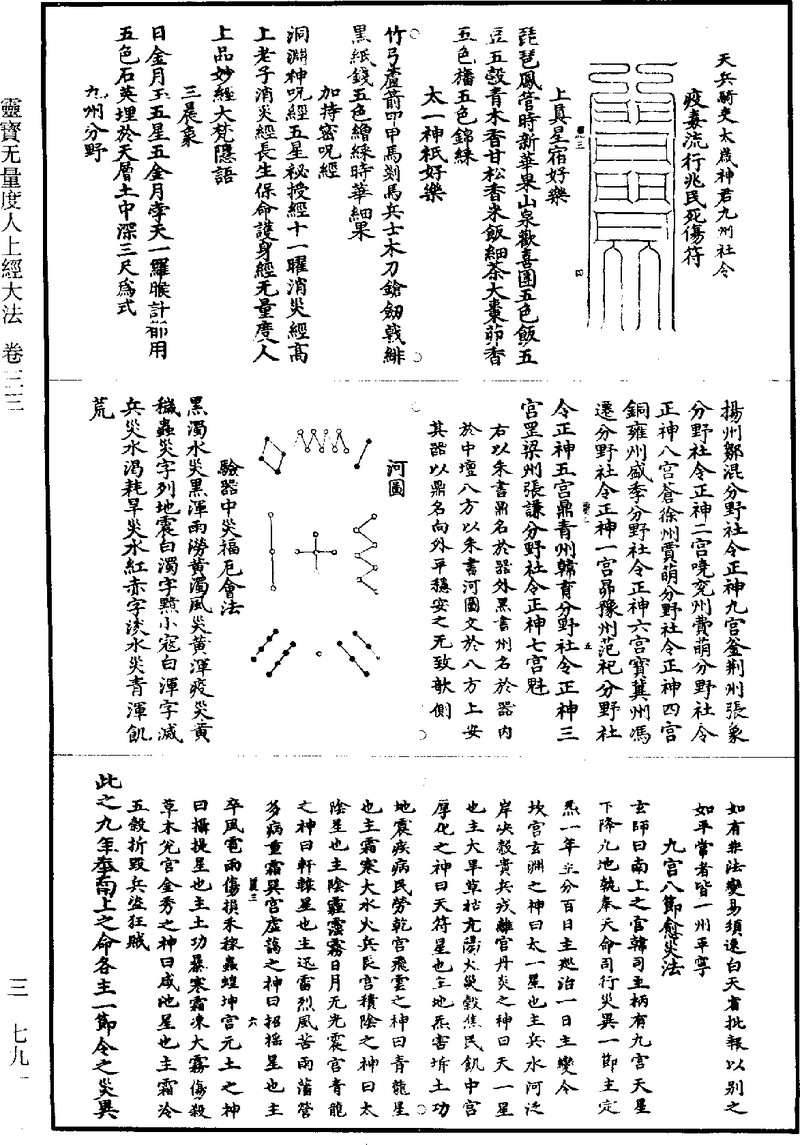 天兵騎吏太歲神君九州社令
疫毒流行兆民死傷符
上真星宿好樂
琵琶鳳管時新華果山泉歡喜團五色飯五
豆五穀青木香甘松香米飯細茶大棗茆香
五色旛五色錦綵
太一神祇好樂
竹弓盧箭叩甲馬剉馬兵士木刀鎗劒戟緋
黑紙錢五色繒綵時華細果
加持密呪經
洞淵神呪經五星祕授經十一曜消災經高
上老子消災經長生保命護身經无量度人
上品妙經大梵隱語
三晨稟
日金月玉五星五金月孛天一羅睺計都用
五色石英埋於天層土中深三尺爲式
九州分野
揚州鄒混分野社令正神九宮釜荆州張象
分野社令正神二宮嘵兖州費萌分野社令
正神八宮蒼徐州賈萌分野社令正神四宮
銅雍州盛季分野社令正神六宮寶冀州馮
遷分野社令正神一宮昴豫州范祀分野社
令正神五宮鼎青州韓育分野社令正神三
宮罡梁州張謙分野社令正神七宮魁
右以朱書鼎名於器外黑書州名於器内
於中壇八方以朱書河圖文於八方上安
其器以鼎名向外平穩安之无致欹側
河圖
驗器中災福厄會法
黑濁水災黑渾雨澇黄濁風災黄渾疫災黄
穢蟲災字列地震白濁字黕小宼白渾字滅
兵災水渴耗旱災水紅赤字淡水災青渾飢
荒
如有非法變易須速白天省批報以别之
如平常者皆一州平寧
九宮八節愈災法
玄師曰南上之宮韓司主柄有九宮天星
下降九地執奉天命司行災異一節主定
炁一年至分百日主巡治一日主變令
坎宮玄淵之神曰太一星也主兵水河泛
岸決穀貴兵戎離宮丹炎之神曰天一星
也主大旱草枯亢陽火災穀焦民飢中宮
厚化之神曰天符星也主地炁害坼土功
地震疾病民勞乾宮飛雲之神曰青龍星
也主霜寒大水火兵艮宮積陰之神曰太
陰星也主陰霾雲霧日月无光震宮青龍
之神曰軒轅星也主迅雷烈風苦雨蕩營
多病重霜巽宮虚蕩之神曰招摇星也主
卒風電雨傷損禾稼蟲蝗坤宮元土之神
曰攝提星也主土功暴寒霜凍大霧傷殺
草木兊宮金秀之神曰咸池星也主霜冷
五穀折毁兵盜狂賊
此之九年奉南上之命各主一節令之災異
靈寶无量度人上經大法 卷三三
三 七九一